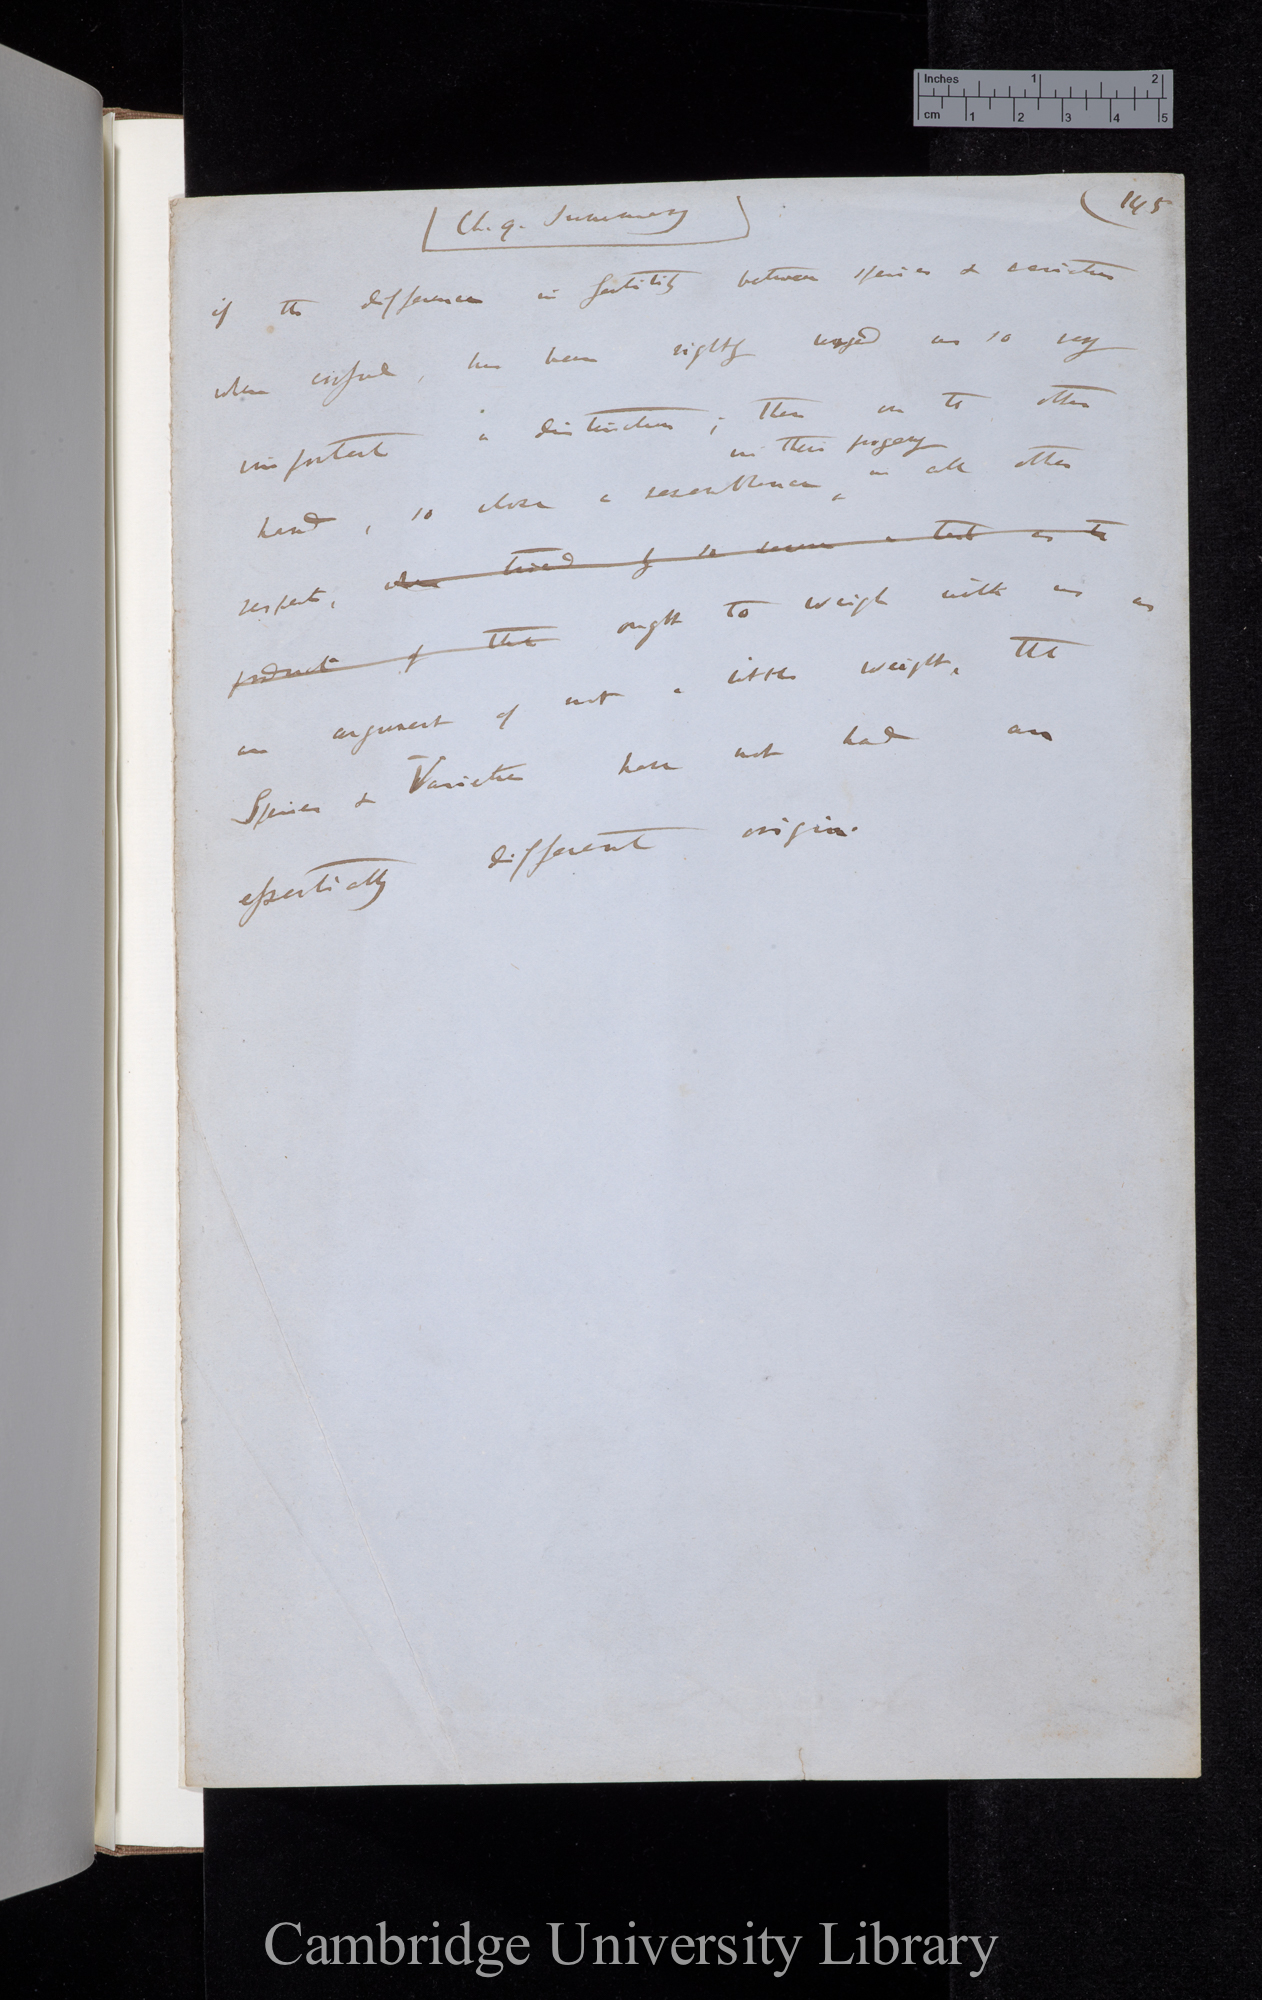 Inches 1 2
cm 1 2 3 4 5
Ch. 9. Summary
145
if the difference in fertility between species & varieties
when crossed, has been rightly urged as so very
important a distinction; then on the other
in their progeny
hand, so close a resemblance in all other
respects, when tried by so severe a test as the
product of the ought to weigh with us as
an argument of not a little weight, that
Species & Varieties have not had an
essentially different origin.
Cambridge University Library